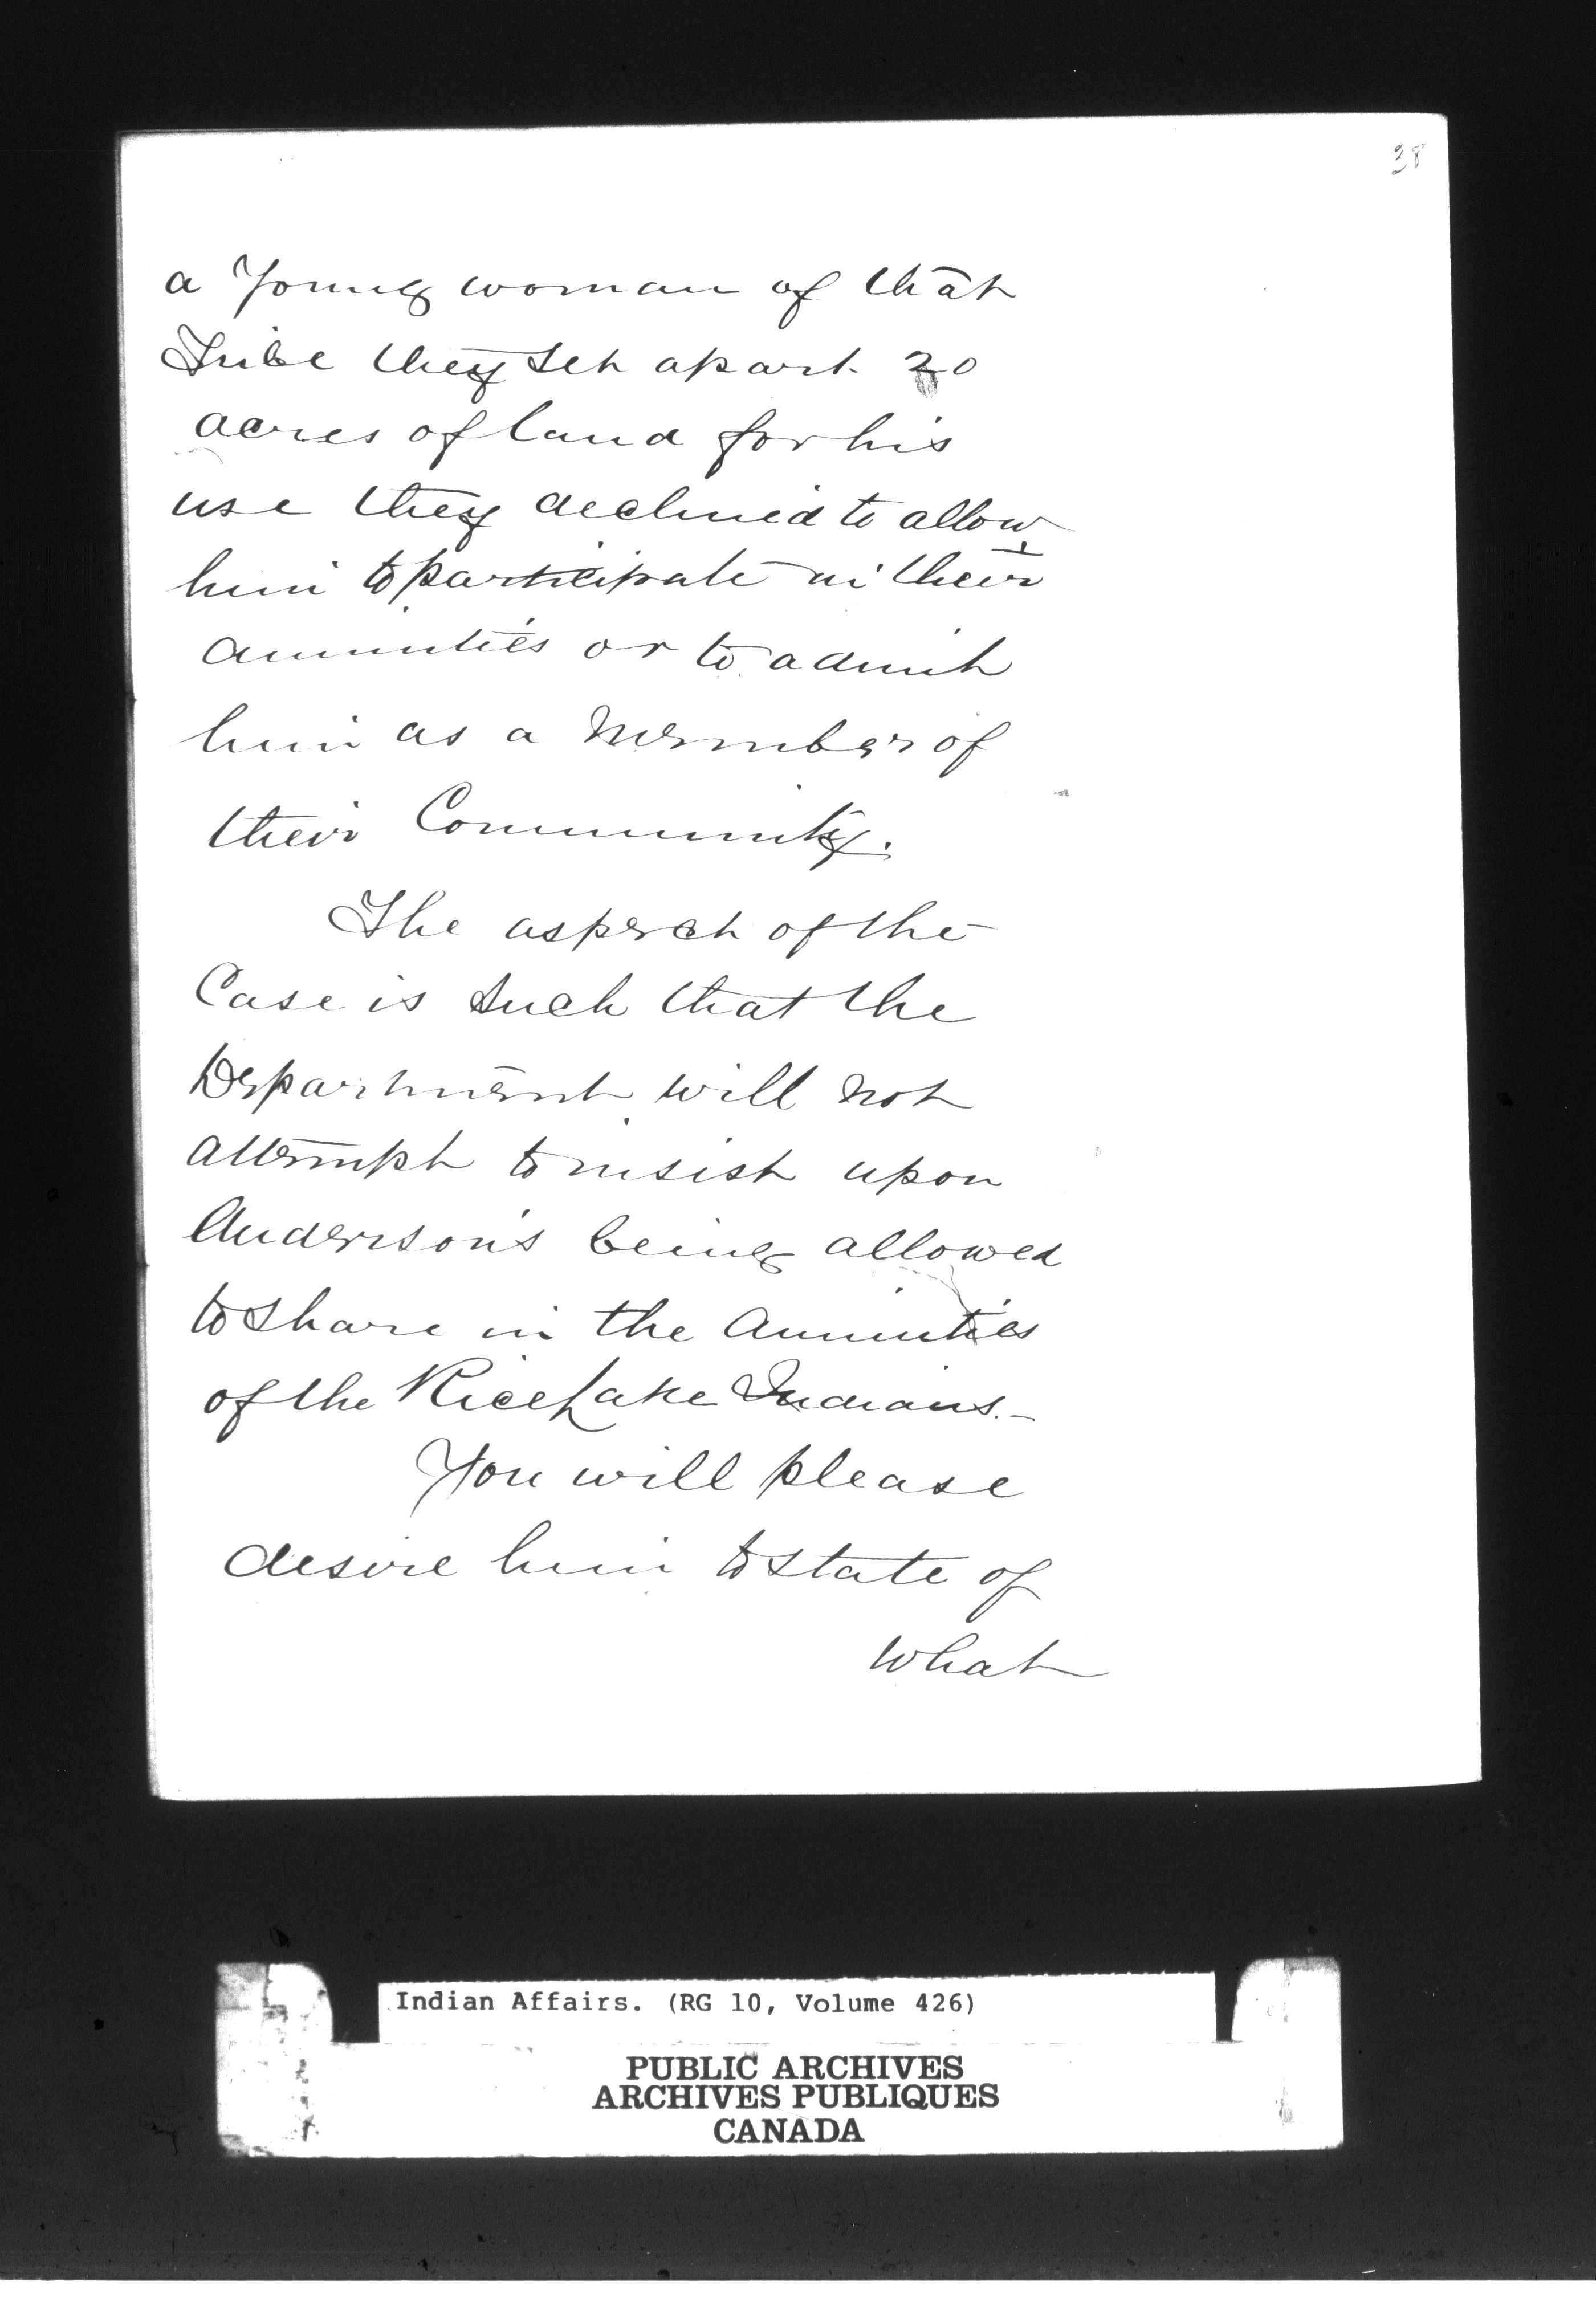 38
a Young woman of that
Tribe they set apart 20
acres of land for his
use they declined to allow
him to participate in their
annuities or to admit
him as a Member of
their Community.
The aspect of the
Case is such that the
Department will not
attempt to insist upon
Anderson's being allowed
to share in the Annuities
of the Rice Lake Indians.-
You will please
desire him to state of
what
Indian Affairs. (RG 10, Volume 426)
PUBLIC ARCHIVES
ARCHIVES PUBLIQUES
CANADA